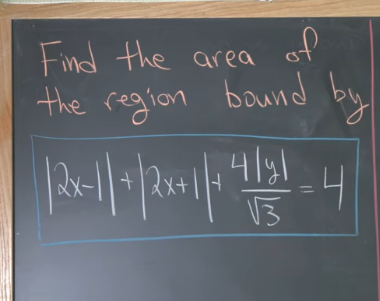 Find the area of
the region bound by
|2x-1| + |2x+1| + 4|y|/√3 = 4